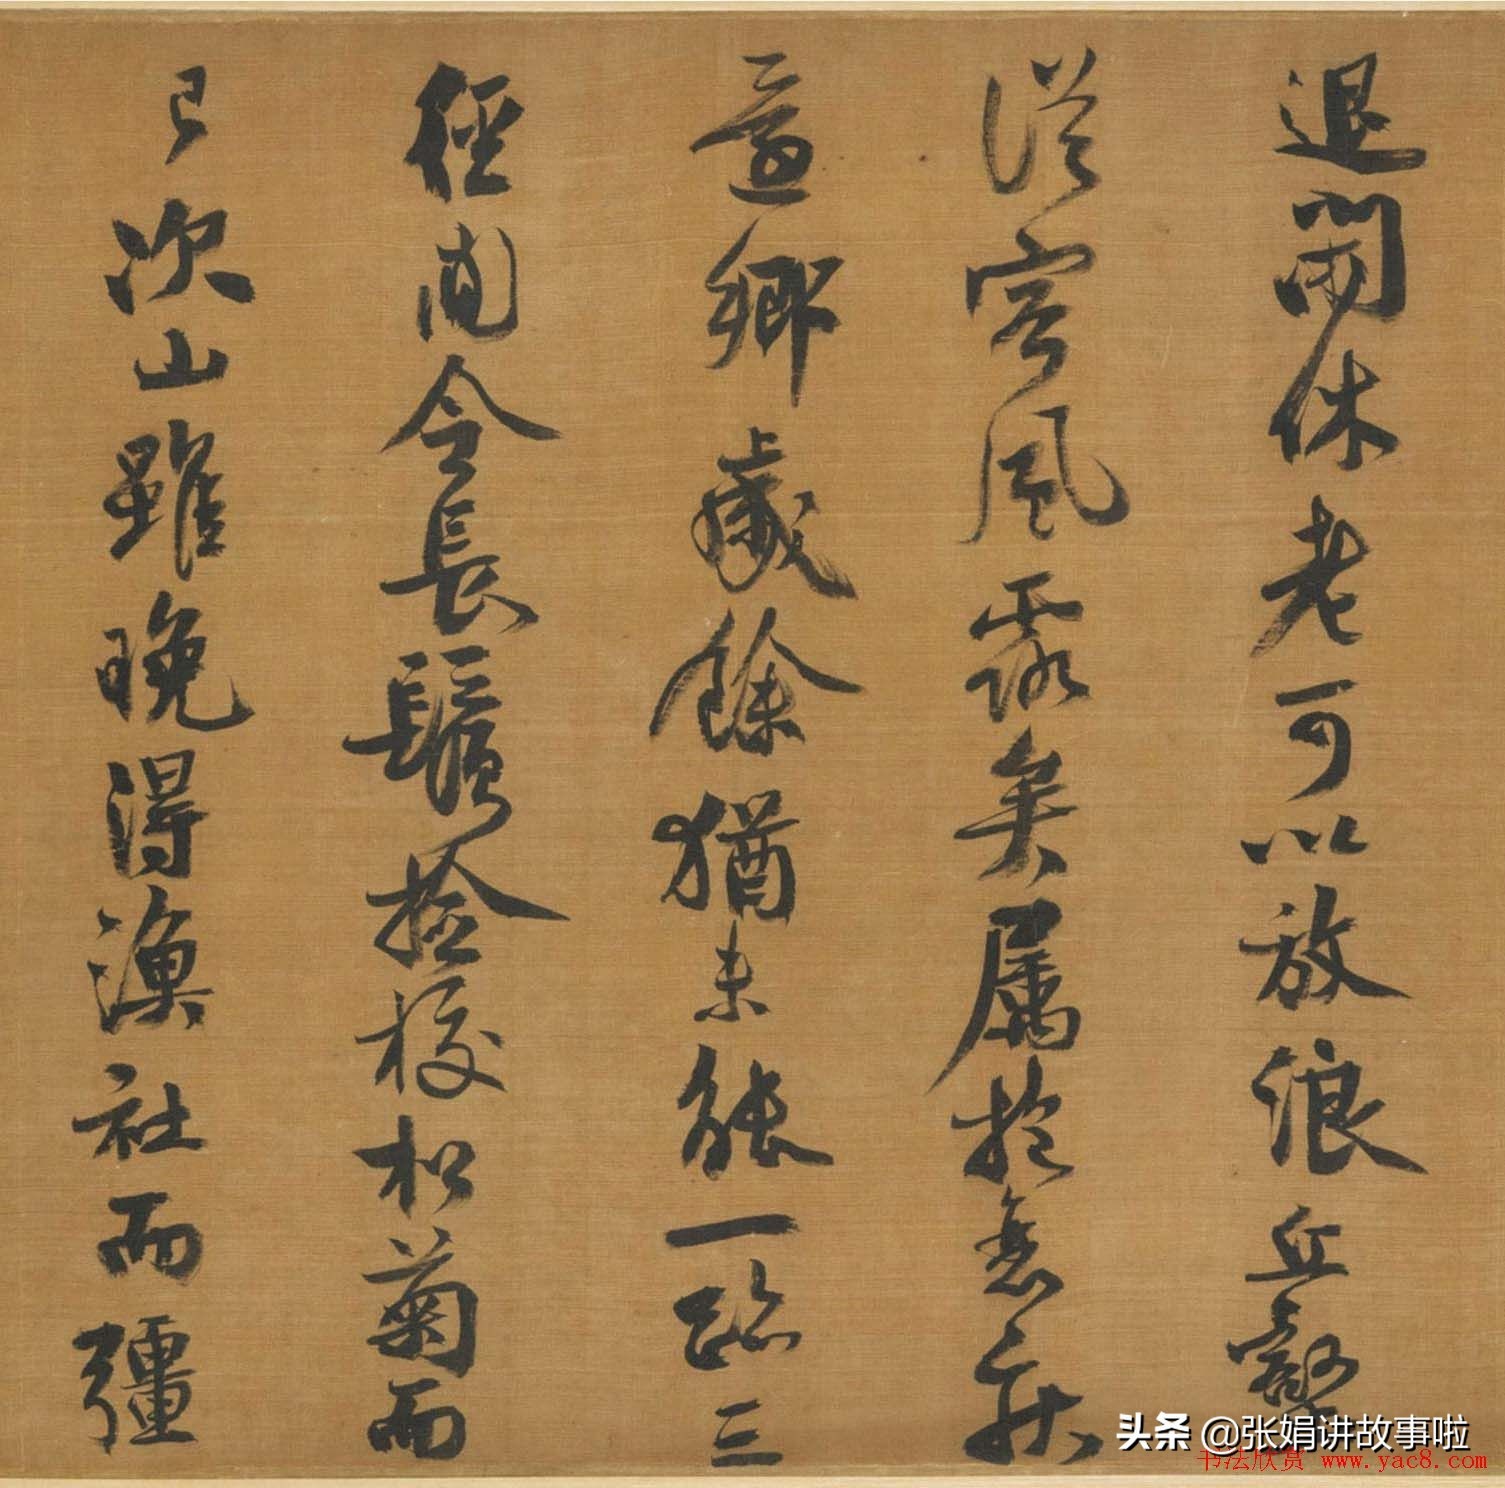 退閒休老可以放浪丘壑
從容風露矣屬抱衰疾
還鄉歲餘猶未能一跡三
徑間令長鬚撿校松菊而
已次山雖晚得漁社而彊
头条 @张娟讲故事啦
书法欣赏 www.yac8.com